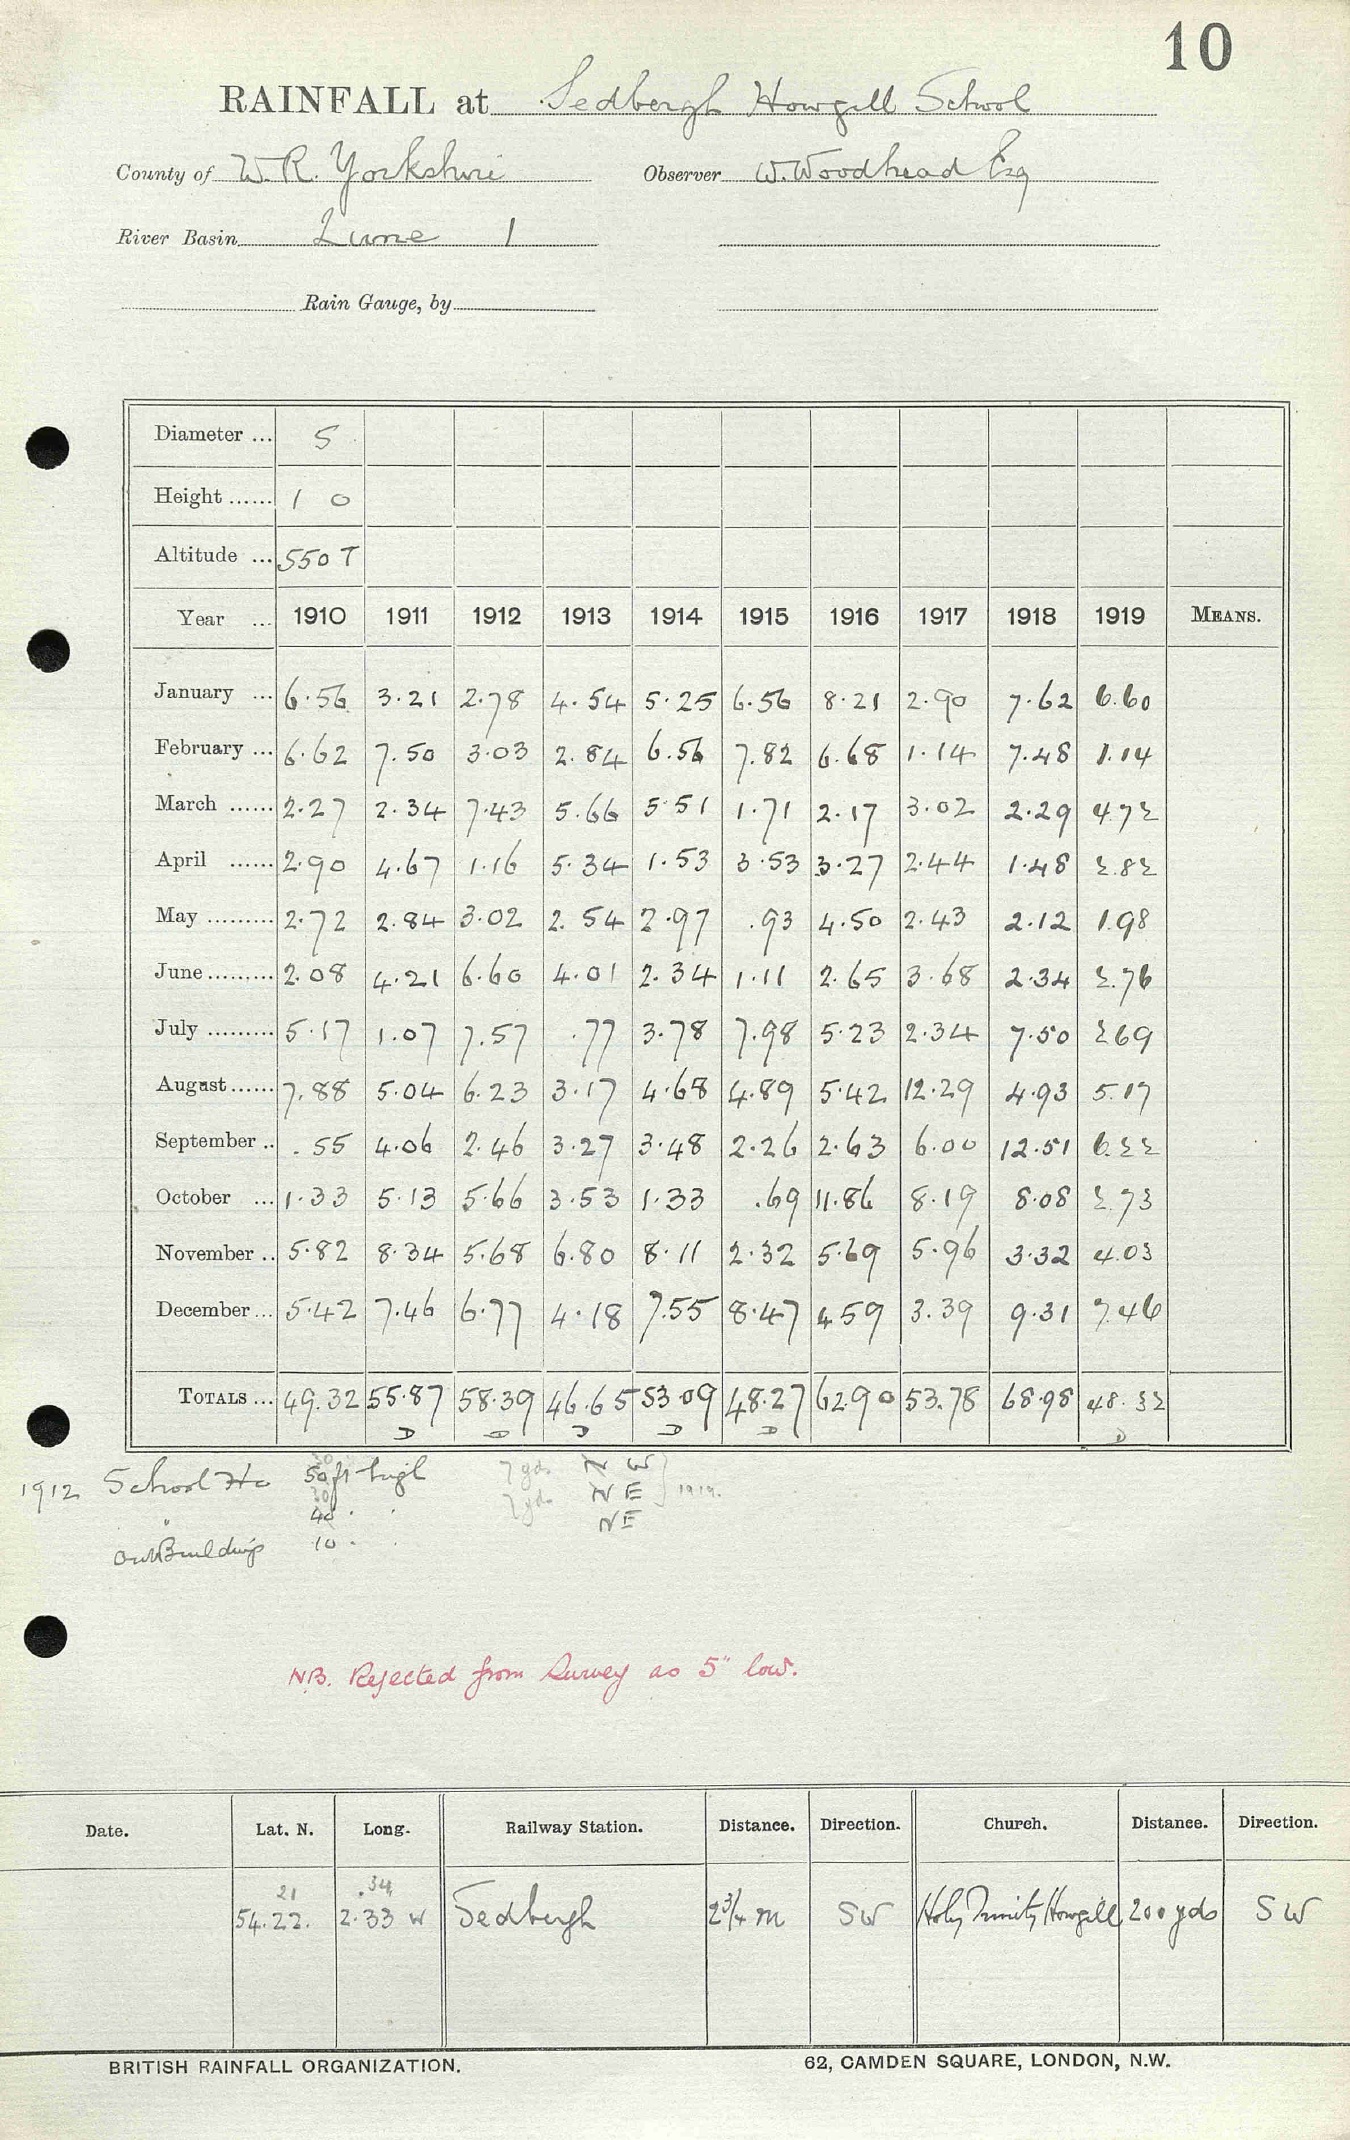 10
RAINFALL at Sedbergh Howgill School
County of W.R. Yorkshire Observer W. Woodhead Esq
River Basin Lune 1
Rain Gauge, by
Diameter ... 5
Height ...... 1 0
Altitude ... 550 T
Year ... 1910 1911 1912 1913 1914 1915 1916 1917 1918 1919 MEANS.
January ... 6.56 3.21 2.78 4.54 5.25 6.56 8.21 2.90 7.62 6.60
February ... 6.62 7.50 3.03 2.84 6.56 7.82 6.68 1.14 7.48 1.14
March ...... 2.27 2.34 7.43 5.66 5.51 1.71 2.17 3.02 2.29 4.72
April ...... 2.90 4.67 1.16 5.34 1.53 3.53 3.27 2.44 1.48 2.82
May ......... 2.72 2.84 3.02 2.54 2.97 .93 4.50 2.43 2.12 1.98
June ......... 2.08 4.21 6.60 4.01 2.34 1.11 2.65 3.68 2.34 2.76
July ......... 5.17 1.07 7.57 .77 3.78 7.98 5.23 2.34 7.50 2.69
August ...... 7.88 5.04 6.23 3.17 4.68 4.89 5.42 12.29 4.93 5.17
September .. .55 4.06 2.46 3.27 3.48 2.26 2.63 6.00 12.51 6.22
October ... 1.33 5.13 5.66 3.53 1.33 .69 11.86 8.19 8.08 2.73
November .. 5.82 8.34 5.68 6.80 8.11 2.32 5.69 5.96 3.32 4.03
December ... 5.42 7.46 6.77 4.18 7.55 8.47 4.59 3.39 9.31 7.46
TOTALS ... 49.32 55.87 58.39 46.65 53.09 48.27 62.90 53.78 68.98 48.32
D D D D D D
30
1912 School Ho 50 ft high 7 yds NW
30
" 40 " " 7 yds NE 1919.
OutBuildings 10 " " NE
NB. Rejected from Survey as 5" low.
Date. Lat. N. Long. Railway Station. Distance. Direction. Church. Distance. Direction.
21 .34
54.22. 2.33 W Sedbergh 2¾ m SW Holy Trinity Howgill 200 yds SW
BRITISH RAINFALL ORGANIZATION. 62, CAMDEN SQUARE, LONDON, N.W.